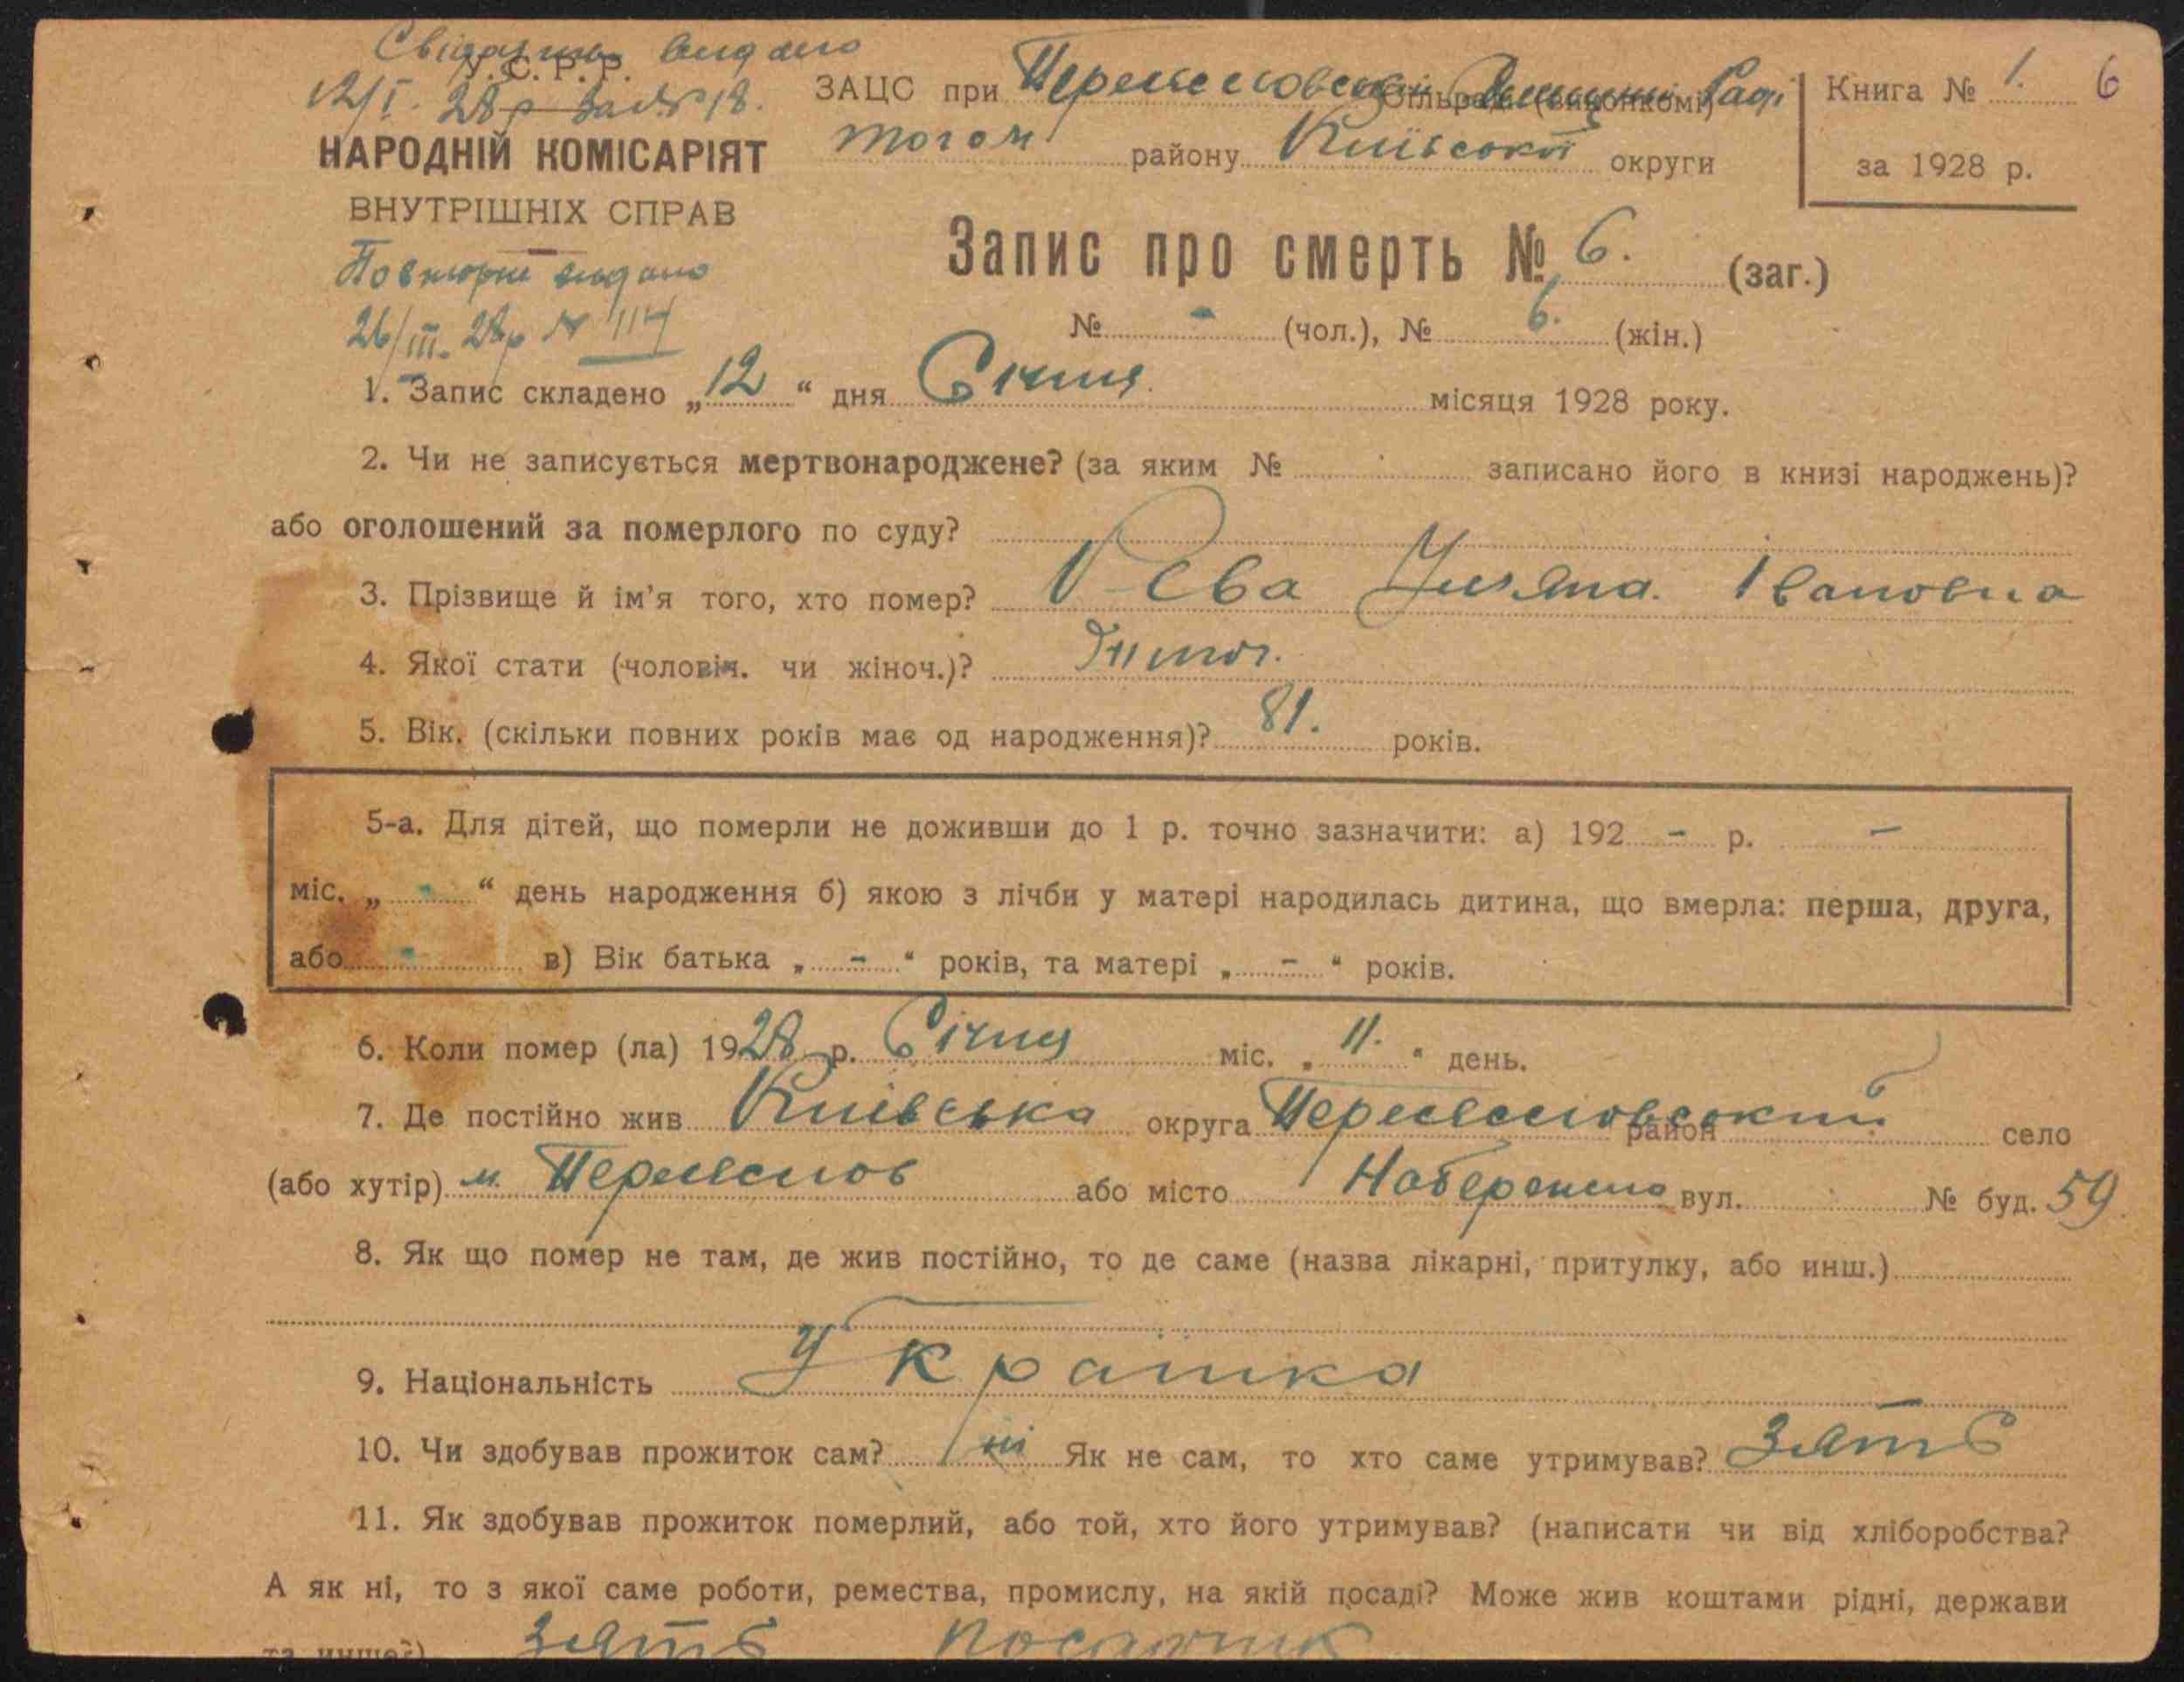 Свідоцтво видано
У.С.Р.Р.
12/І. 28р за № 18.
НАРОДНІЙ КОМІСАРІЯТ
ВНУТРІШНІХ СПРАВ
Повторне видано
26/III. 28р № 114
ЗАЦС при Переясловській Сільраді (виконкомі) Раді
того ж району Київської округи
Книга № 1. 6
за 1928 р.
Запис про смерть № 6. (заг.)
№ - (чол.), № 6. (жін.)
1. Запис складено „12“ дня Січня місяця 1928 року.
2. Чи не записується мертвонароджене? (за яким № записано його в книзі народжень)?
або оголошений за померлого по суду?
3. Прізвище й ім'я того, хто помер? Рева Уляна Івановна
4. Якої стати (чоловіч. чи жіноч.)? Жіноч.
5. Вік. (скільки повних років має од народження)? 81. років.
5-а. Для дітей, що померли не доживши до 1 р. точно зазначити: а) 192 - р. -
міс. „ - “ день народження б) якою з лічби у матері народилась дитина, що вмерла: перша, друга,
або - в) Вік батька „ - “ років, та матері „ - “ років.
6. Коли помер (ла) 1928 р. Січня міс. „ 11. “ день.
7. Де постійно жив Київська округа Переясловський район село
(або хутір) м. Переяслов або місто Набережна вул. № буд. 59
8. Як що помер не там, де жив постійно, то де саме (назва лікарні, притулку, або инш.)
9. Національність Українка
10. Чи здобував прожиток сам? ні Як не сам, то хто саме утримував? Зять
11. Як здобував прожиток померлий, або той, хто його утримував? (написати чи від хліборобства?
А як ні, то з якої саме роботи, ремества, промислу, на якій посаді? Може жив коштами рідні, держави
та инше?) Зять